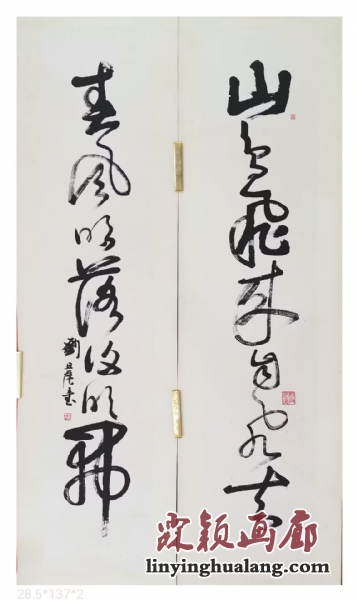 山鳥飛來自飛去
春風吹落復吹開
劉正成書
霖颖画廊
linyinghualang.com
28.5*137*2